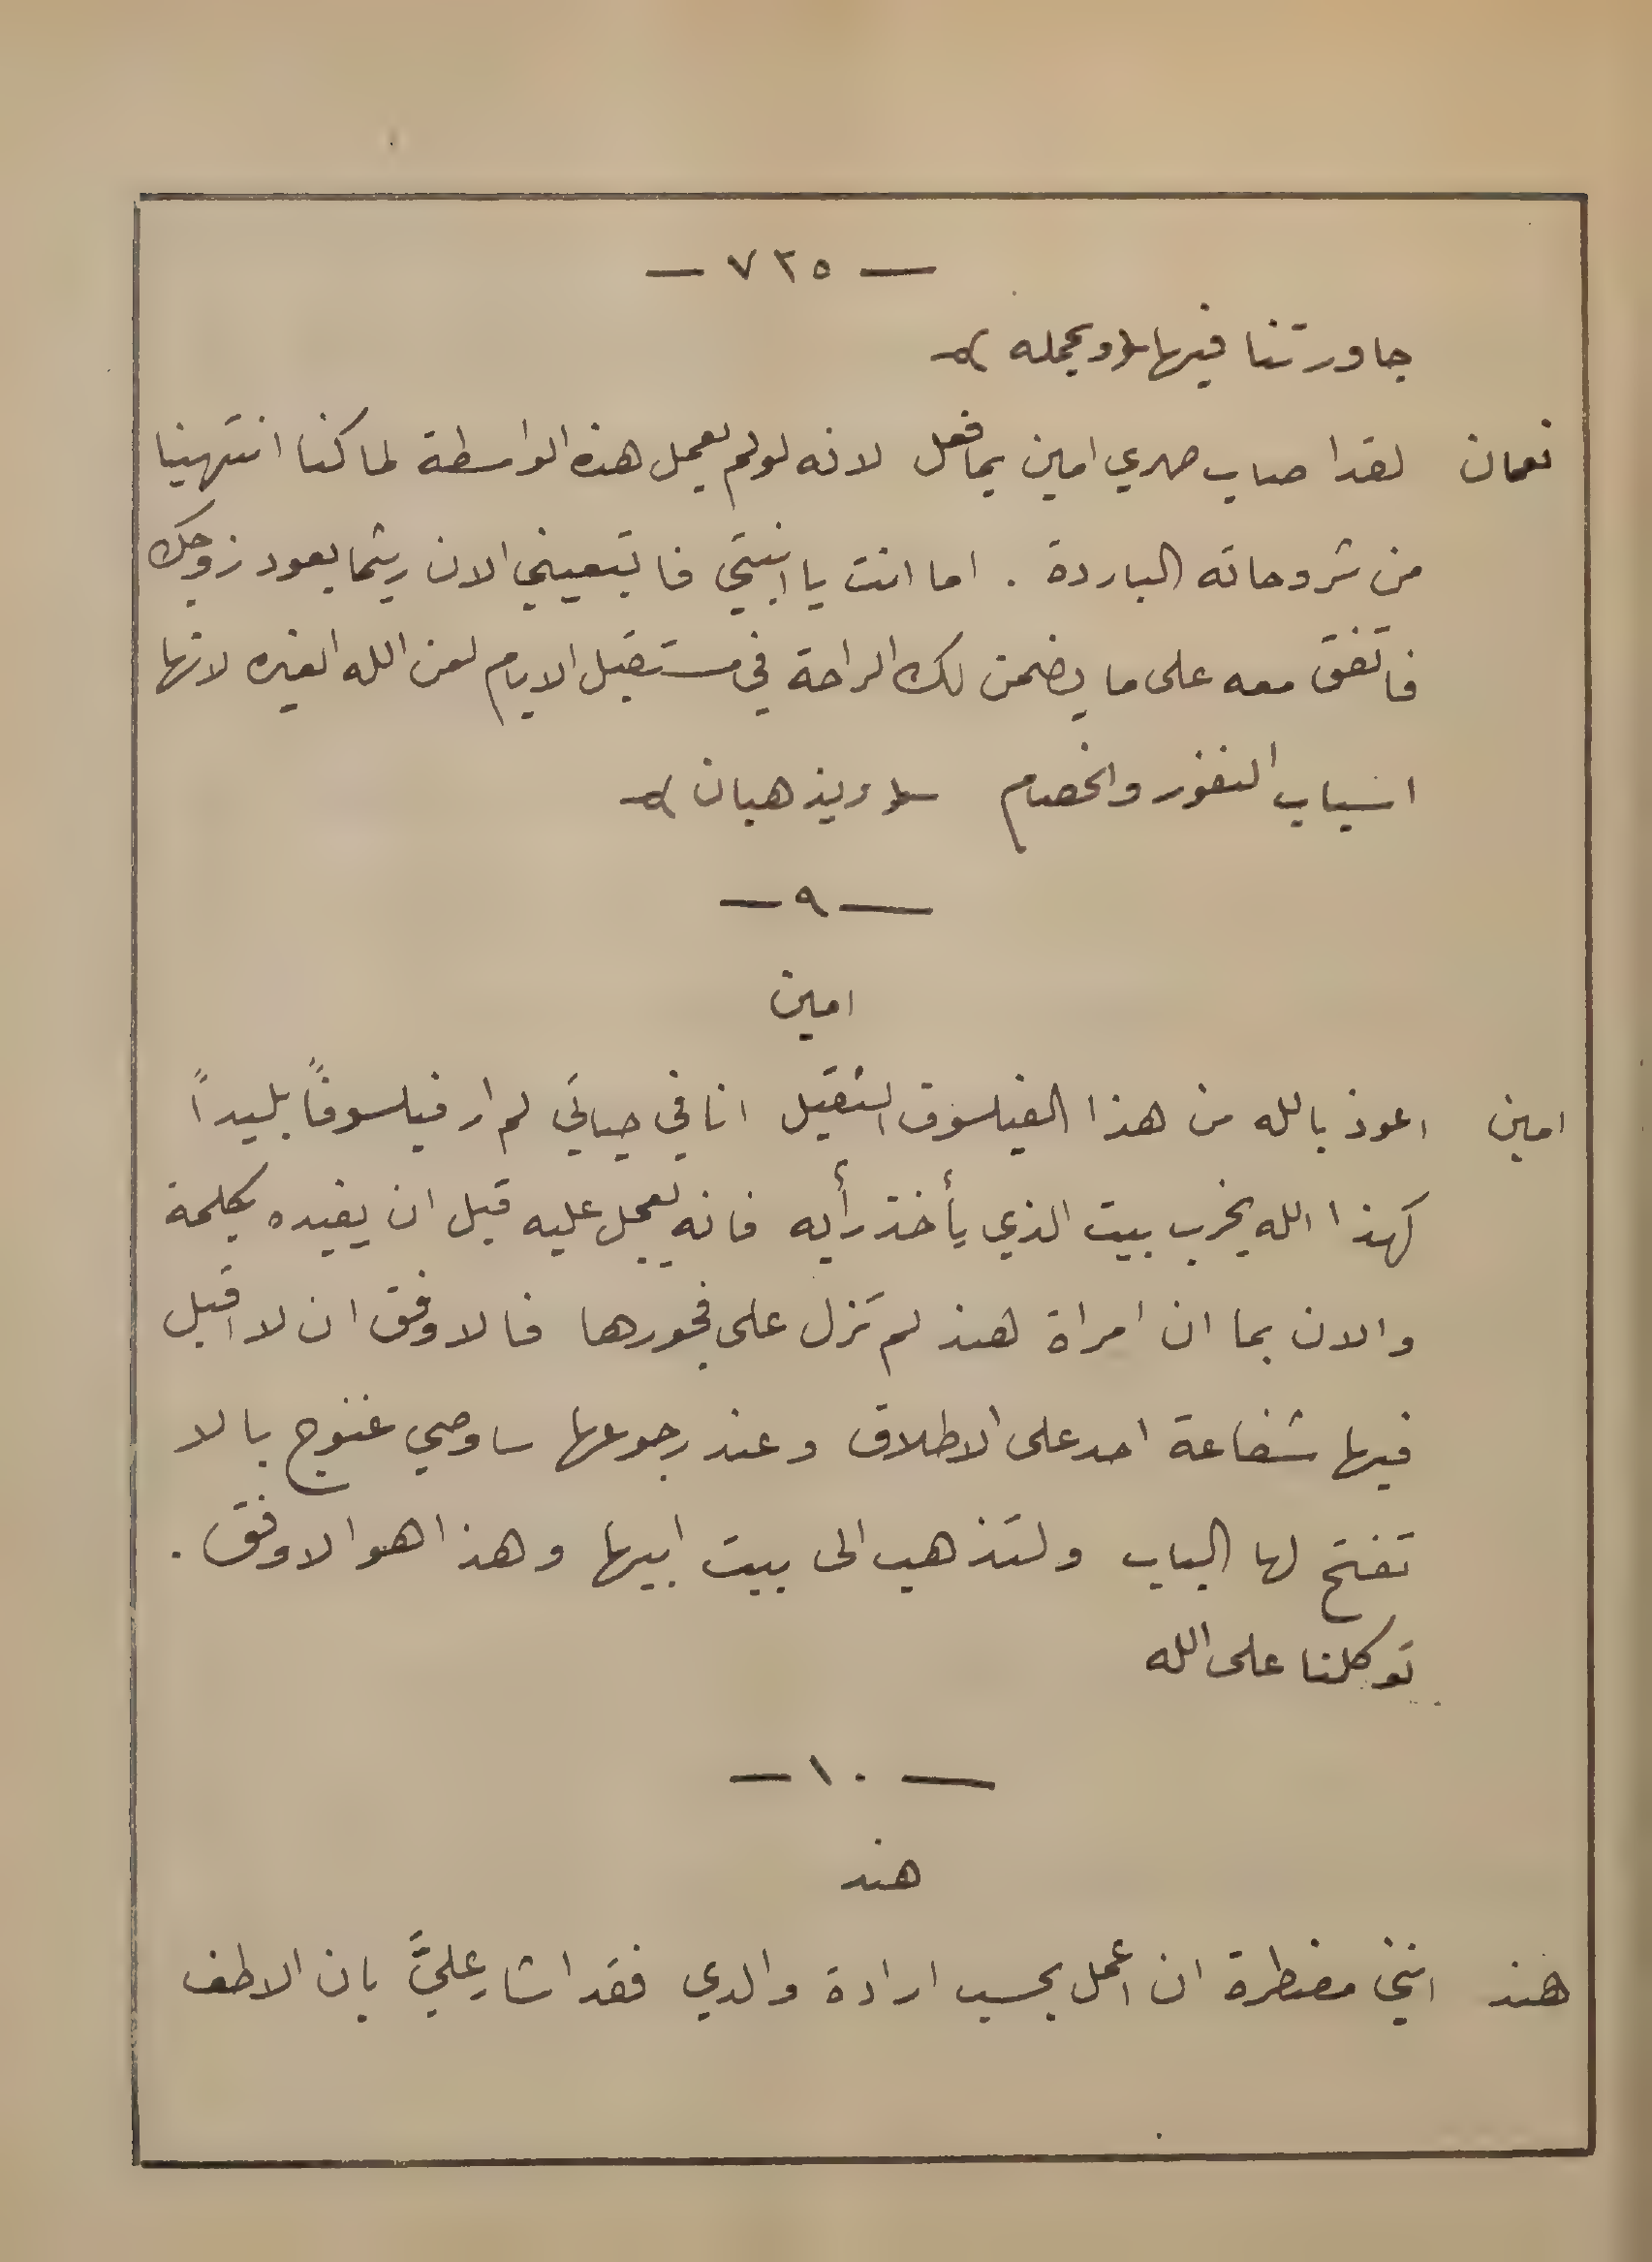 — ٧٢٥ —
جاورتنا فيها (ويحمله)
نعمان لقد اصاب صهري امين بما فعل لانه لو لم يعمل هذه الواسطة لما كنا انتهينا
من شروحاته الباردة . اما انت يا ابنتي فاتبعيني الان ريثما يعود زوجك
فاتفق معه على ما يضمن لك الراحة في مستقبل الايام لعن الله الغيره لانها
اسباب النفور والخصام (ويذهبان)
— ٩ —
امين
امين اعوذ بالله من هذا الفيلسوف الثقيل انا في حياتي لم ار فيلسوفاً بليداً
كهذا الله يخرب بيت الذي يأخذ رأيه فانه يعجل عليه قبل ان يفيده بكلمة
والان بما ان امراة هند لم تزل على فجورها فالاوفق ان لا اقبل
فيها شفاعة احد على الاطلاق وعند رجوعها ساوصي غنوج بالا
تفتح لها الباب ولتذهب الى بيت ابيها وهذا هو الاوفق .
توكلنا على الله
— ١٠ —
هند
هند انني مضطرة ان اعمل بحسب ارادة والدي فقد اشار عليَّ بان الاطف